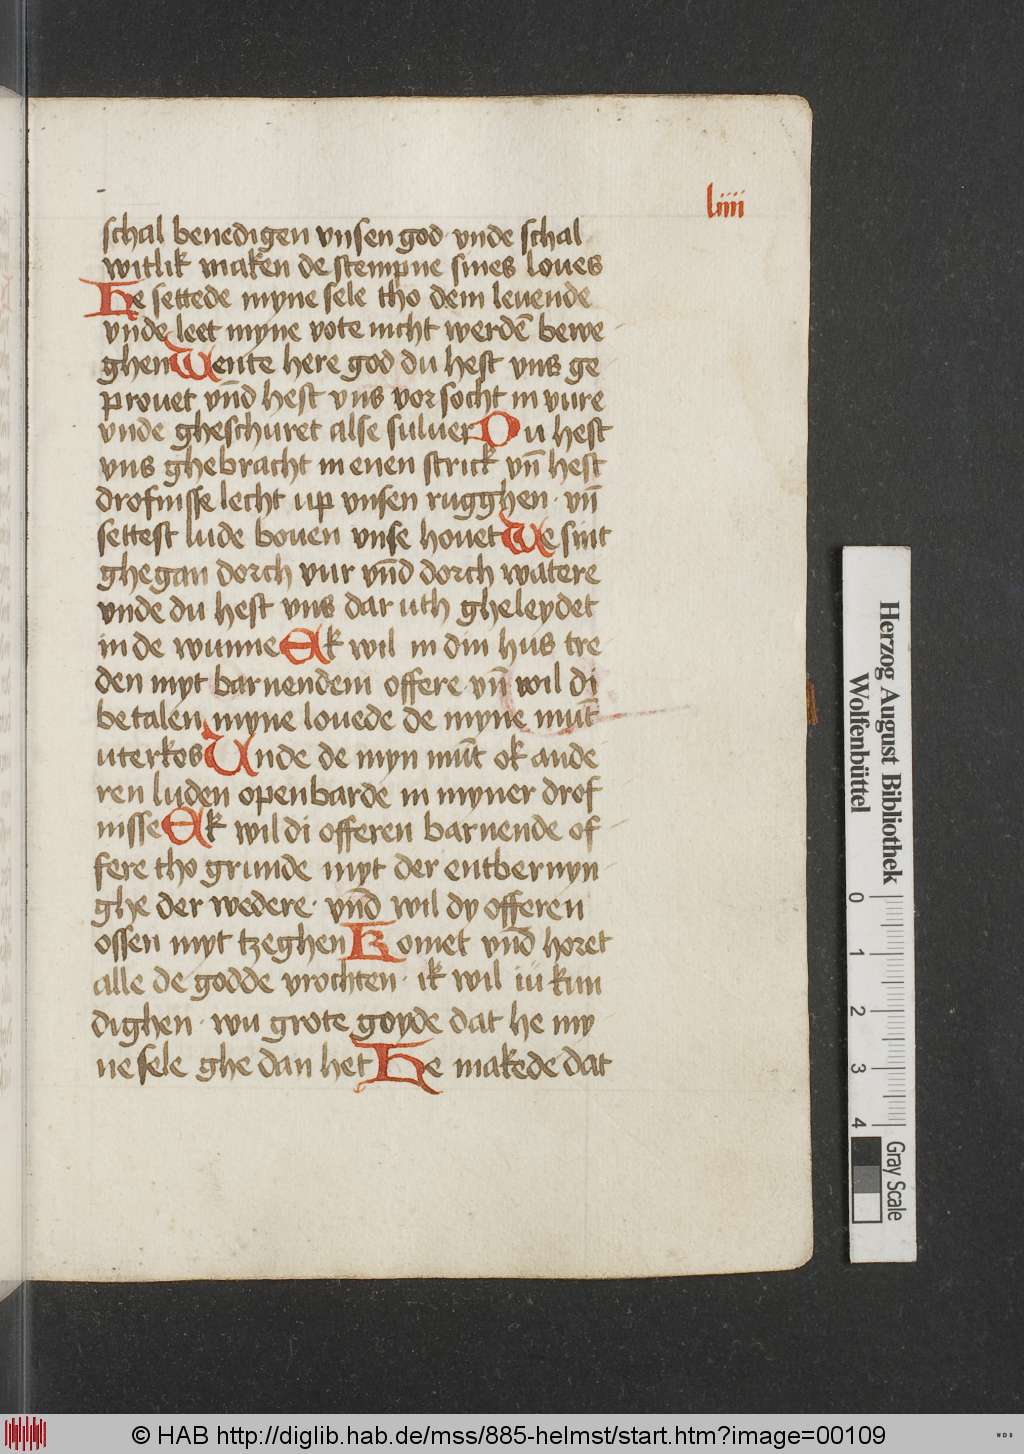 liiii
schal benedigen vnsen god vnde schal
witlik maken de stempne sines loues
He settede myne sele tho dem leuende
vnde leet myne vote nicht werdē bewe
ghen Wente here god du hest vns ge
prouet vn̄d hest vns vorsocht in vure
vnde gheschuret alse suluer Du hest
vns ghebracht in enen strick vn̄ hest
drofnisse lecht up vnsen rugghen · vn̄
settest lude bouen vnse houet We sint
ghegan dorch vur vn̄d dorch watere
vnde du hest vns dar uth gheleydet
in de wunne Ek wil in din hus tre
den myt barnendem offere · vn̄ wil di
betalen myne louede de myne mūt
uterkos Unde de myn mūt ok ande
ren luden openbarde in myner drof
nisse Ek wil di offeren barnende of
fere tho grunde myt der entbernyn
ghe der wedere · vn̄d wil dy offeren
ossen myt tzeghen Komet vn̄d horet
alle de godde vrochten · ik wil iu kun
dighen · wu grote goyde dat he my
ne sele ghe dan het He makede dat
Herzog August Bibliothek
Wolfenbüttel
0 1 2 3 4
Gray Scale
© HAB http://diglib.hab.de/mss/885-helmst/start.htm?image=00109